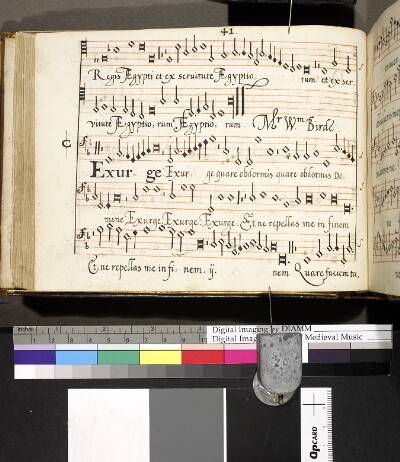 41.
Regis Ægypti et ex seruitute Ægyptio, rum et ex ser
vitute Ægyptio, rum Ægyptio. rum Mr Wm Birde
C
Exur- ge Exur- ge quare obdormis quare obdormis Do-
mine Exurge. Exurge. Exurge. Et ne repellas me in finem
Et ne repellas me in fi- nem. ij. nem Quare faciem tu,
inches 1 2 3
Digital Imaging by DIAMM
Digital Ima Medieval Music
QPCARD